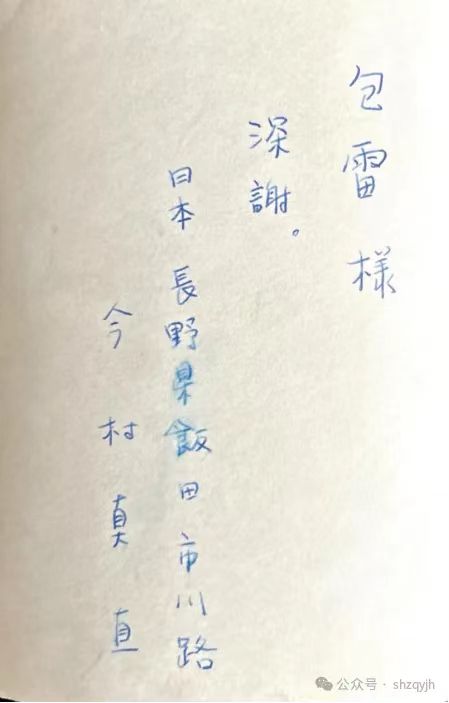 包雷様
深謝。
日本 長野県飯田市川路
今村真直
公众号 · shzqyjh